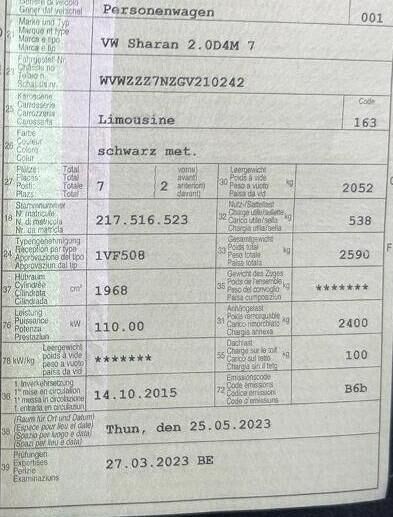 Genere di veicolo
Personenwagen 001
Marke und Typ
Marque et type
Marca e tipo
Marca e tip
VW Sharan 2.0D4M 7
Fahrgestell-Nr.
Châssis no
Telaio n.
Schassis nr.
WVWZZZ7NZGV210242
25 Karosserie
Carrosserie
Carrozzeria
Carossaria
Limousine
Code
163
26 Farbe
Couleur
Colore
Colur
schwarz met.
27 Plätze: Total
Places: Totale
Posti: Totale
Plazs: Total
7
2
vorne)
avant)
anteriori)
davant)
30 Leergewicht
Poids à vide
Peso a vuoto
Paisa da vid
kg
2052
18 Stammnummer
N° matricule
N. di matricola
Nr. da matricla
217.516.523
32 Nutz-/Sattellast
Charge utile/sellette
Carico utile/sella
Chargia utila/sella
kg
538
24 Typengenehmigung
Réception par type
Approvazione del tipo
Approvaziun dal tip
1VF508
33 Gesamtgewicht
Poids total
Peso totale
Paisa totala
kg
2590
37 Hubraum
Cylindrée
Cilindrata
Cilindrada
cm³
1968
35 Gewicht des Zuges
Poids de l'ensemble
Peso del convoglio
Paisa cumposiziun
kg
*******
76 Leistung
Puissance
Potenza
Prestaziun
kW
110.00
31 Anhängelast
Poids remorquable
Carico rimorchiato
Chargia annexa
kg
2400
78 kW/kg
Leergewicht
poids à vide
peso a vuoto
paisa da vid
*******
55 Dachlast
Charge sur le toit
Carico sul tetto
Chargia sin il tetg
kg
100
36 1. Inverkehrsetzung
1re mise en circulation
1a messa in circolazione
1. entrada en circulaziun
14.10.2015
72 Emissionscode
Code émissions
Codice emissioni
Code d'emissiuns
B6b
38 (Raum für Ort und Datum)
(Espace pour lieu et date)
(Spazio per luogo e data)
(Spazi per lieu e data)
Thun, den 25.05.2023
39 Prüfungen
Expertises
Perizie
Examinaziuns
27.03.2023 BE